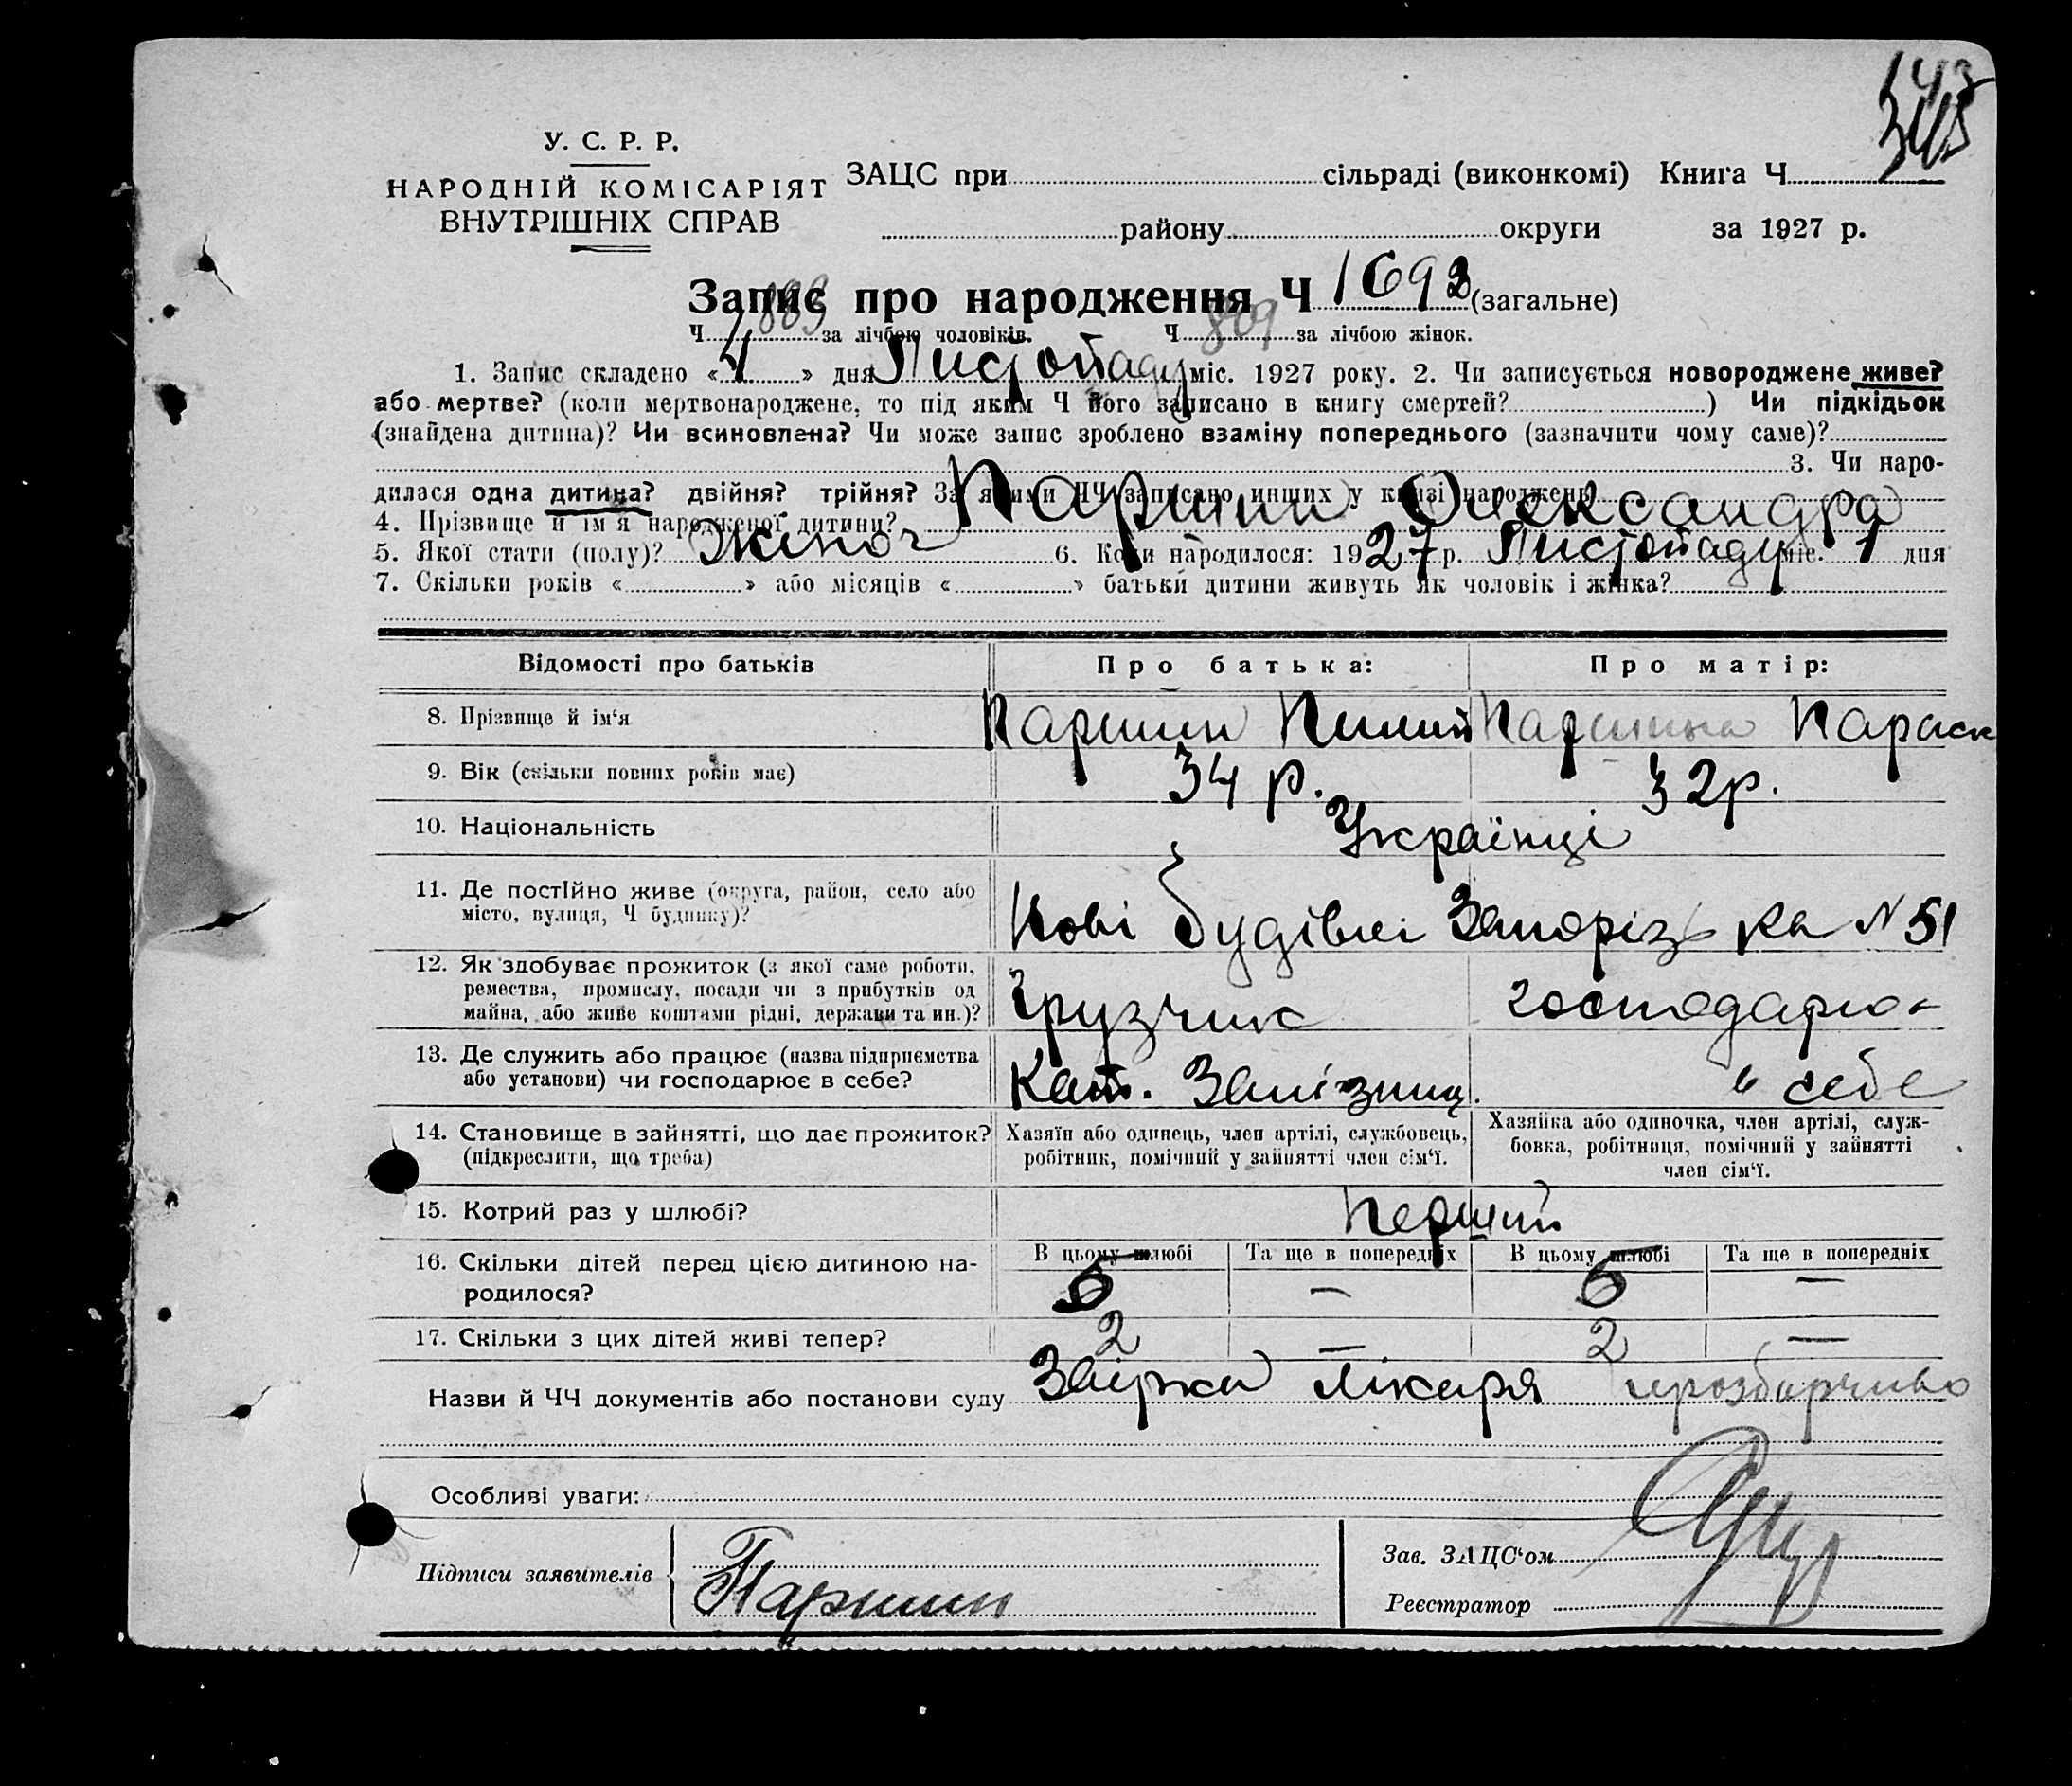 У. С. Р. Р.
НАРОДНІЙ КОМІСАРІЯТ
ВНУТРІШНІХ СПРАВ
ЗАЦС при сільраді (виконкомі) Книга Ч.
району округи за 1927 р.
Запис про народження Ч 1693 (загальне)
Ч. 883 за лічбою чоловіків. Ч. 809 за лічбою жінок.
1. Запис складено «4» дня Листопаду міс. 1927 року. 2. Чи записується новороджене живе?
або мертве? (коли мертвонароджене, то під яким Ч його записано в книгу смертей? ) Чи підкідьок
(знайдена дитина)? Чи всиновлена? Чи може запис зроблено взаміну попереднього (зазначити чому саме)?
3. Чи наро-
дилася одна дитина? двійня? трійня? За якими ЧЧ записано инших у книзі народжень
4. Прізвище й ім'я народженої дитини? Паршин Олександра
5. Якої стати (полу)? Жіноч 6. Коли народилося: 1927 р. Листопаду міс. 1 дня
7. Скільки років « » або місяців « » батьки дитини живуть як чоловік і жінка?
Відомості про батьків Про батька: Про матір:
8. Прізвище й ім'я Паршин Паршина Параск
9. Вік (скільки повних років має) 34 р. 32 р.
10. Національність Українці
11. Де постійно живе (округа, район, село або
місто, вулиця, Ч будинку)? Нові будівлі Запорізька № 51
12. Як здобуває прожиток (з якої саме роботи,
ремества, промислу, посади чи з прибутків од
майна, або живе коштами рідні, держави та ин.)? Грузчик господарює
13. Де служить або працює (назва підприємства
або установи) чи господарює в себе? Кат. Залізниц. в себе
14. Становище в зайнятті, що дає прожиток?
(підкреслити, що треба)
Хазяїн або одинець, член артілі, службовець,
робітник, помічний у зайнятті член сім'ї.
Хазяйка або одиночка, член артілі, служ-
бовка, робітниця, помічний у зайнятті
член сім'ї.
15. Котрий раз у шлюбі? Перший
В цьому шлюбі Та ще в попередніх В цьому шлюбі Та ще в попередніх
16. Скільки дітей перед цією дитиною на-
родилося? 6 — 6 —
17. Скільки з цих дітей живі тепер? 2 — 2 —
Назви й ЧЧ документів або постанови суду лікаря
Особливі уваги:
Підписи заявителів Паршин
Зав. ЗАЦС'ом
Реєстратор